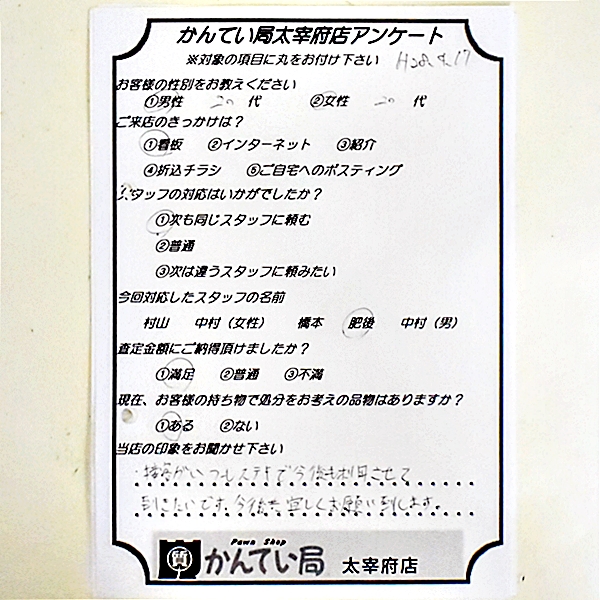 かんてい局太宰府店アンケート
※対象の項目に丸をお付け下さい H28.4.17
お客様の性別をお教えください
①男性 20 代 ②女性 20 代
ご来店のきっかけは？
①看板 ②インターネット ③紹介
④折込チラシ ⑤ご自宅へのポスティング
スタッフの対応はいかがでしたか？
①次も同じスタッフに頼む
②普通
③次は違うスタッフに頼みたい
今回対応したスタッフの名前
村山 中村（女性） 橋本 肥後 中村（男）
査定金額にご納得頂けましたか？
①満足 ②普通 ③不満
現在、お客様の持ち物で処分をお考えの品物はありますか？
①ある ②ない
当店の印象をお聞かせ下さい
・接客がいつもステキで今後も利用させて
到きたいです。今後共宜しくお願い到します。
Pawn Shop
質 かんてい局 太宰府店